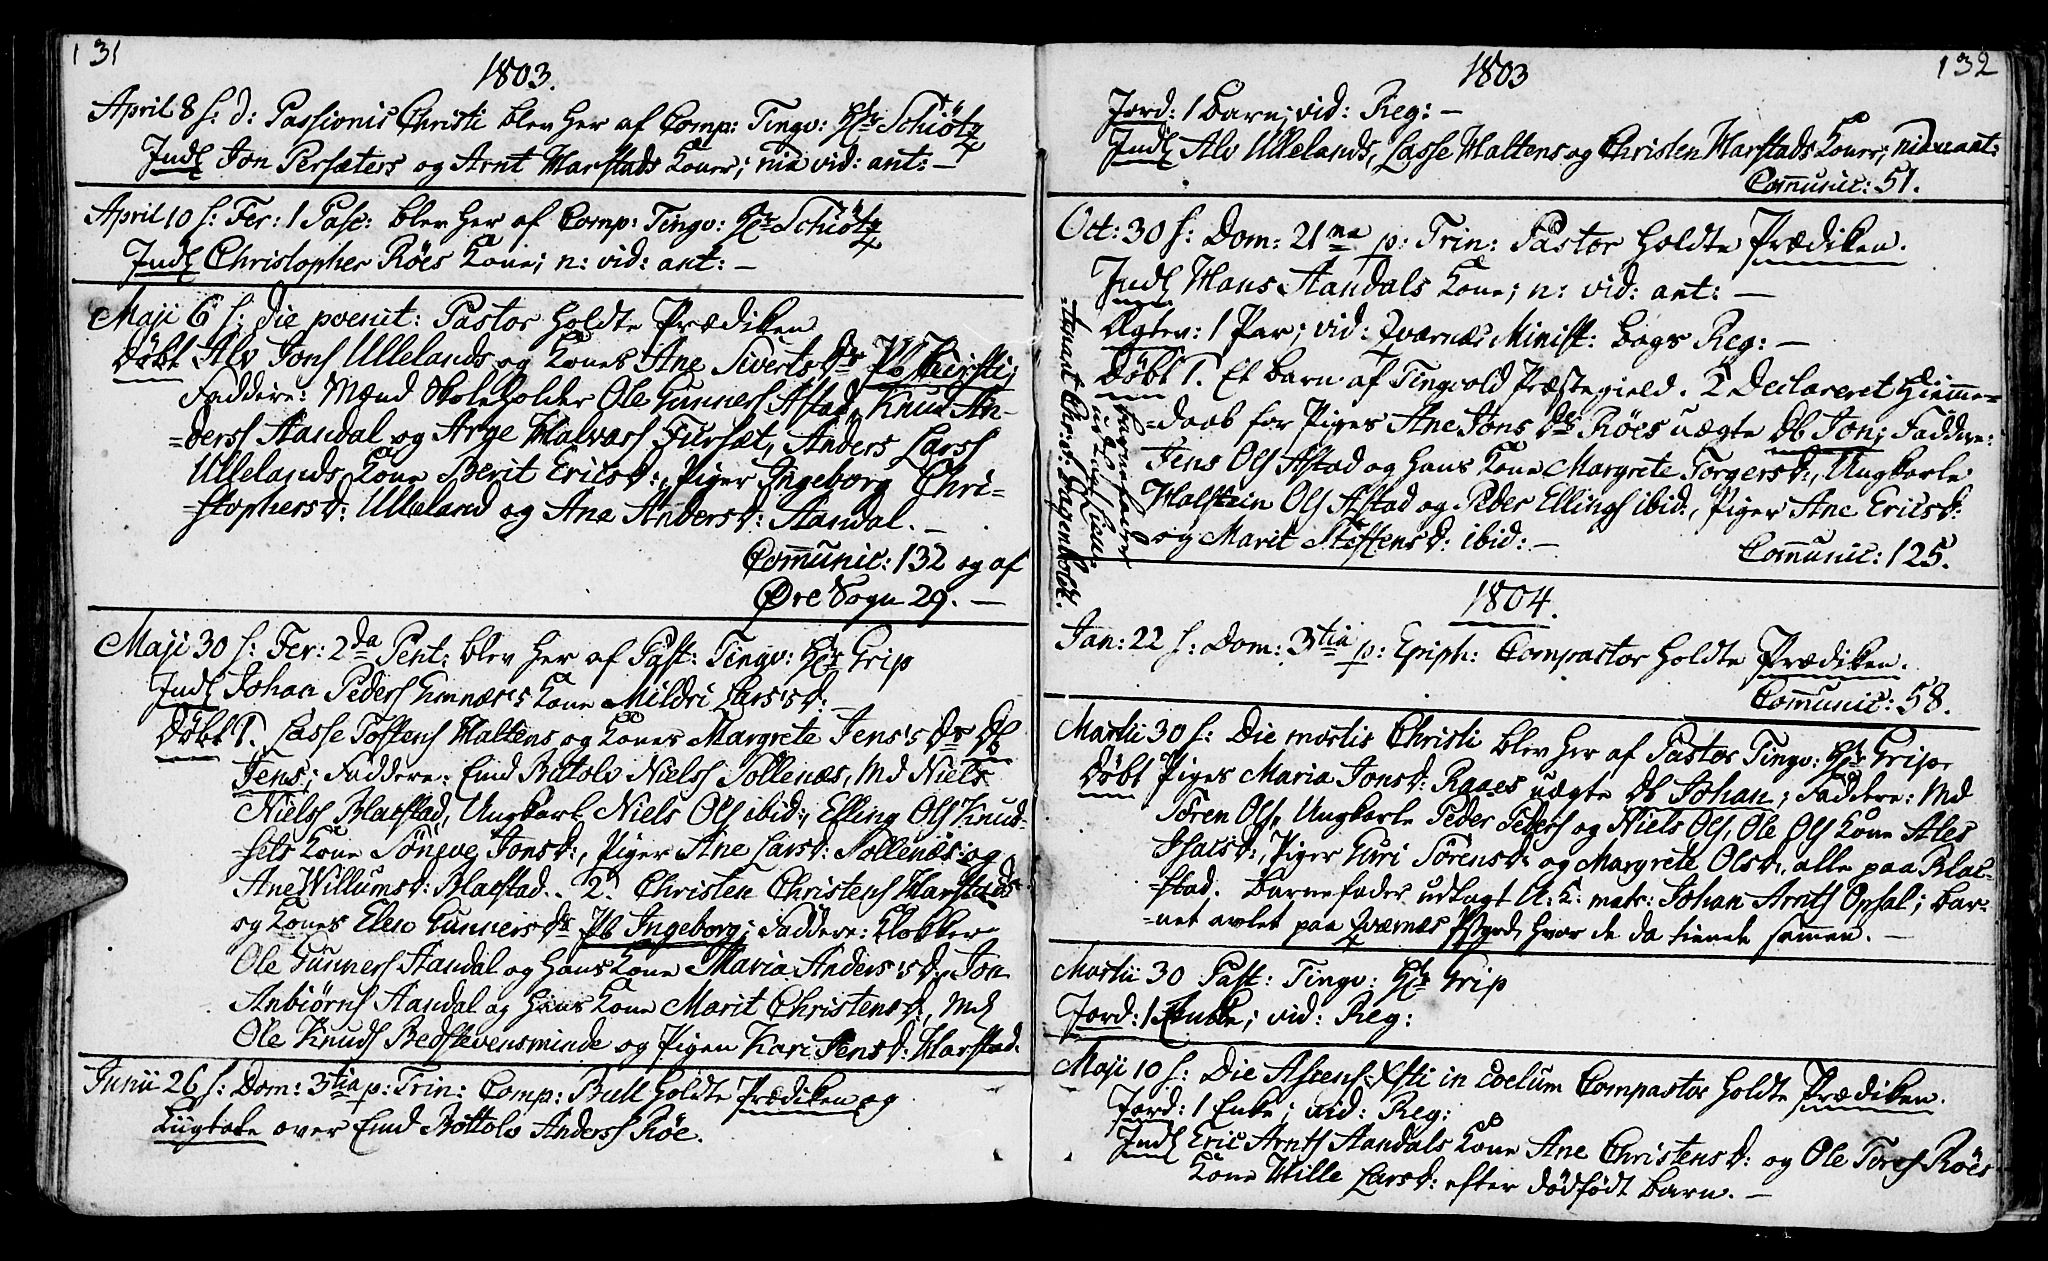 131
1803.
April 8 h: d: Passionis Christi blev her af Comp: Tingv: Hr Schiötz
Indl Jon Persæters og Arnt Harstads Koner; nia vid: ant: —
April 10 h: Fer: 1 Pasc: blev her af Comp: Tingv: Hr Schiötz
Indl Christopher Röes Kone; n: vid: ant: —
Maji 6 h: die poenit: Pastor holdte Prædiken
Döbt Alv Jons Ullelands og Kones Ane Siverts Dr Pb Kirsti;
Faddere: Mænd Skoleholder Ole Gunners Astad, Knud An-
=derss Aandal og Arge Halvars Fursæt, Anders Larss
Ullelands Kone Berit Ericsd:, Piger Ingeborg Chri-
=stophersd: Ulleland og Ane Andersd: Aandal. —
Comunic: 132 og af
Øre Sogn 29. —
Maji 30 h: Fer: 2da Pent: blev her af Past: Tingv: Hr Grip
Indl Johan Peders Gimnæs's Kone Mildri Lars's D: —
Döbt 1. Lasse Tostens Haltens og Kones Margrete Jens's Dr Db
Jens; Faddere: Emd Botolv Nielss Sollenæs, Md Niels
Nielss Blakstad, Ungkarl Niels Ols ibid:, Elling Ols Knud-
=sets Kone Sönove Jonsd:, Piger Ane Larsd: Sollenæs og
Ane Willumsd: Blakstad. 2. Christen Christens Harstads
og Kones Elen Gunners Dr Pb Ingeborg; Faddere: Klokker
Ole Gunners Aandal og hans Kone Maria Anders's D:, Jon
Anbiörns Aandal og hans Kone Marit Christensd:, Md
Ole Knuds Bedstevensminde og Pigen Kari Jensd: Harstad.
Junii 26 h: Dom: 3tia p: Trin: Comp: Bull holdte Prædiken og
Liigtale over Emd Bottolv Anderss Röe.
1803
132
Jord: 1 Barn; vid: Reg: —
Indl Alv Ullelands, Lasse Haltens og Christen Harstads Koner; vid: ant:
Comunic: 51.
Oct: 30 h: Dom: 21na p: Trin: Pastor holdte Prædiken.
Indl Hans Aandals Kone; n: vid: ant: —
Ægtev: 1 Par; vid: Qværnæs Minist: Bogs Reg: —
Döbt 1. Et Barn af Tingvold Præstegield. 2 Declareret Hiemme=
=daab for Piges Ane Jons Drs Röes uægte Db Jon; Faddere:
Jens Ols Astad og hans Kone Margrete Torgersd:, Ungkarle
Halstein Ols Astad og Peder Ellings ibid:, Piger Ane Ericsd:
og Marit Stöffensd: ibid: —
Comunic: 125.
Barnefader
1804.
Jan: 22 h: Dom: 3tia p: Epiph: Compastor holdte Prædiken.
Comunic: 58.
Martii 30 h: Die mortis Christi blev her af Pastor Tingv: Hr Grip
Döbt Piges Maria Jonsd: Raaes uægte Db Johan; Faddere: Md
Sören Ols, Ungkarle Peder Peders og Niels Ols, Ole Ols Kone Ales
Isacsd:, Piger Guri Sörensd: og Margrete Olsd:, alle paa Blak-
=stad. Barnefader udlagt U: K: matr: Johan Arnts Opsal; Bar-
=net avlet paa Qværnæs Pstgrd, hvor de da tiente sammen. —
Martii 30 Past: Tingv: Hr Grip
Jord: 1 Enke; vid: Reg:
Maji 10 h: Die Ascens: Xsti in coelum Compastor holdte Prædiken.
Jord: 1 Enke; vid: Reg:
Indl Eric Arnts Aandals Kone Ane Christensd: og Ole Tores Röes
Kone Hille Larsd: efter dödfödt Barn. —